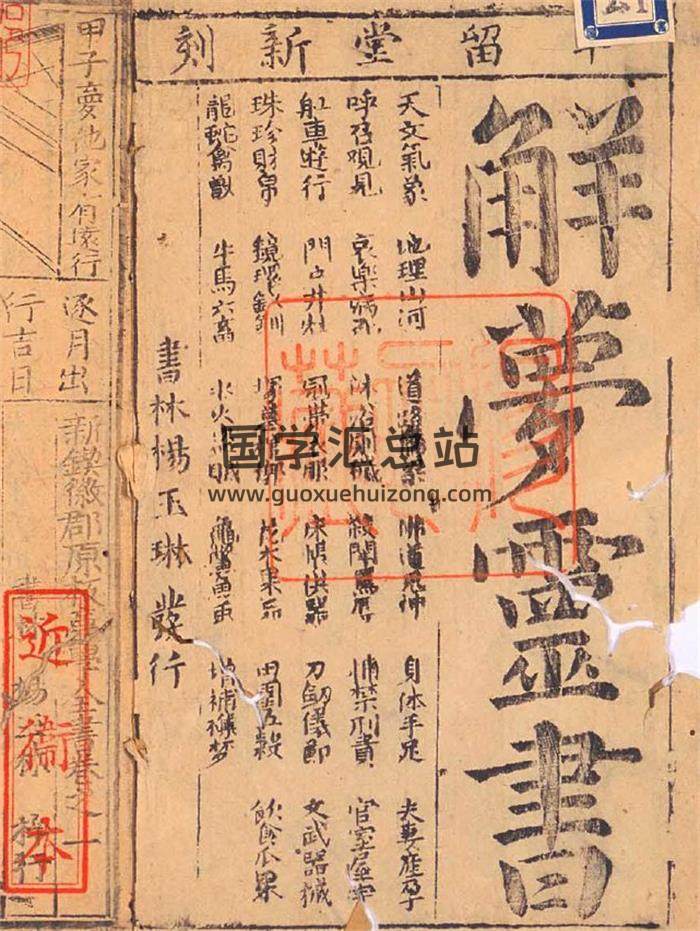 留堂新刻
解夢靈書
天文氣象 地理山河 道路 佛道鬼神 身体手足 夫妻產孕
呼召观见 哀樂病死 沐浴 殺鬪罵辱 捕禁刑責 官室屋宇
舡車遊行 門戶井灶 冠帶衣服 床帳供器 刀劍儀節 文武器械
珠珍財帛 鏡環釵釧 花木果品 田園五穀 飲食瓜果
龍蛇禽獸 牛馬六畜 水火 龜鱉魚虫 增補禳梦
書林楊玉琳發行
甲子 他家有遠行
逐月出行吉日
新鍥徽郡原板 全書卷之一
書 梓行
近衛本
国学汇总站
www.guoxuehuizong.com